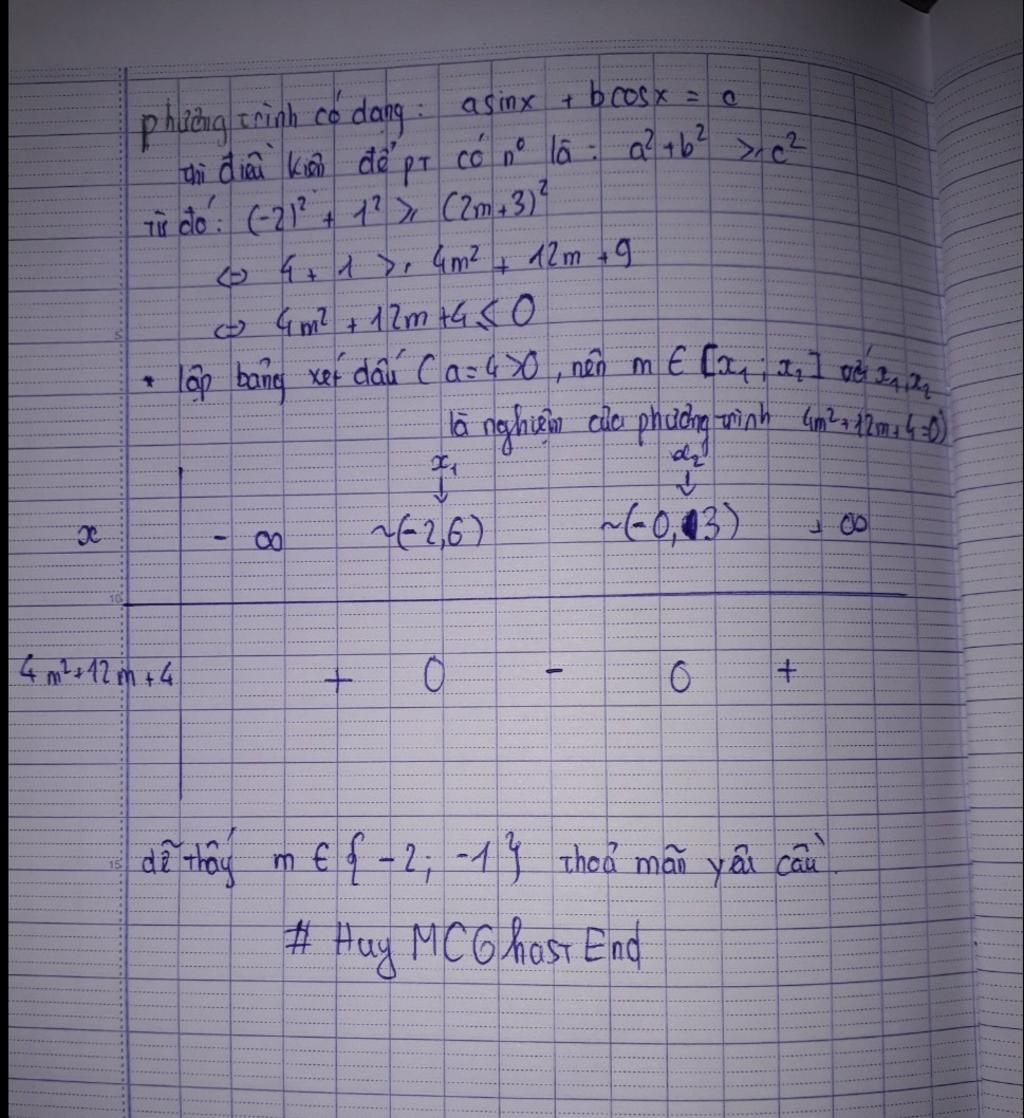 phương trình có dạng: asinx + bcosx = c
thì điều kiện để PT có n⁰ là: a² + b² ≥ c²
Từ đó: (-2)² + 1² ≥ (2m+3)²
⇔ 4 + 1 ≥ 4m² + 12m + 9
⇔ 4m² + 12m + 4 ≤ 0
* lập bảng xét dấu (a=4>0, nên m ∈ [x₁; x₂] với x₁, x₂
là nghiệm của phương trình 4m²+12m+4=0)
x₁ x₂
↓ ↓
x -∞ ~(-2,6) ~(-0,13) +∞
4m²+12m+4 + 0 - 0 +
dễ thấy m ∈ {-2; -1} thoả mãn yêu cầu.
# Huy MCGhast End